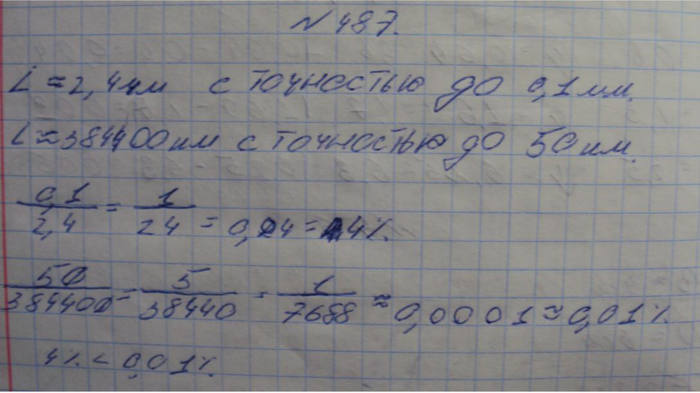 N487.
L≈2,4мм с точностью до 0,1мм.
L≈384400км с точностью до 50км.
0,1/2,4 = 1/24 = 0,04 = 4%.
50/384400 = 5/38440 = 1/7688 ≈ 0,0001 ≈ 0,01%.
4% < 0,01%.